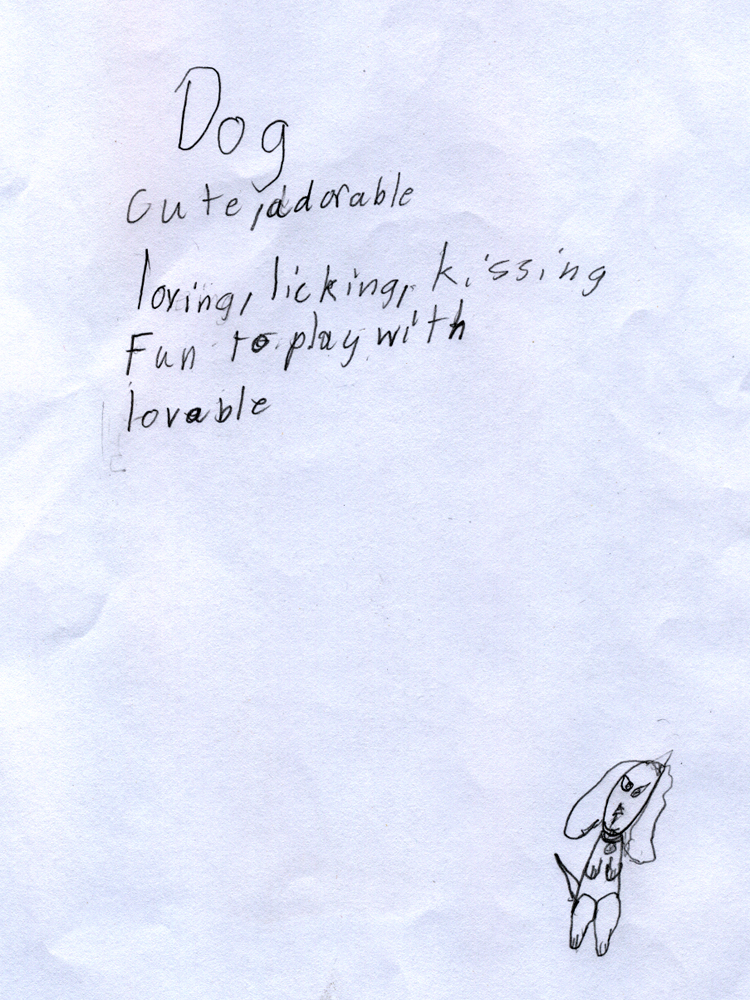 Dog
Cute, adorable
loving, licking, kissing
Fun to play with
lovable